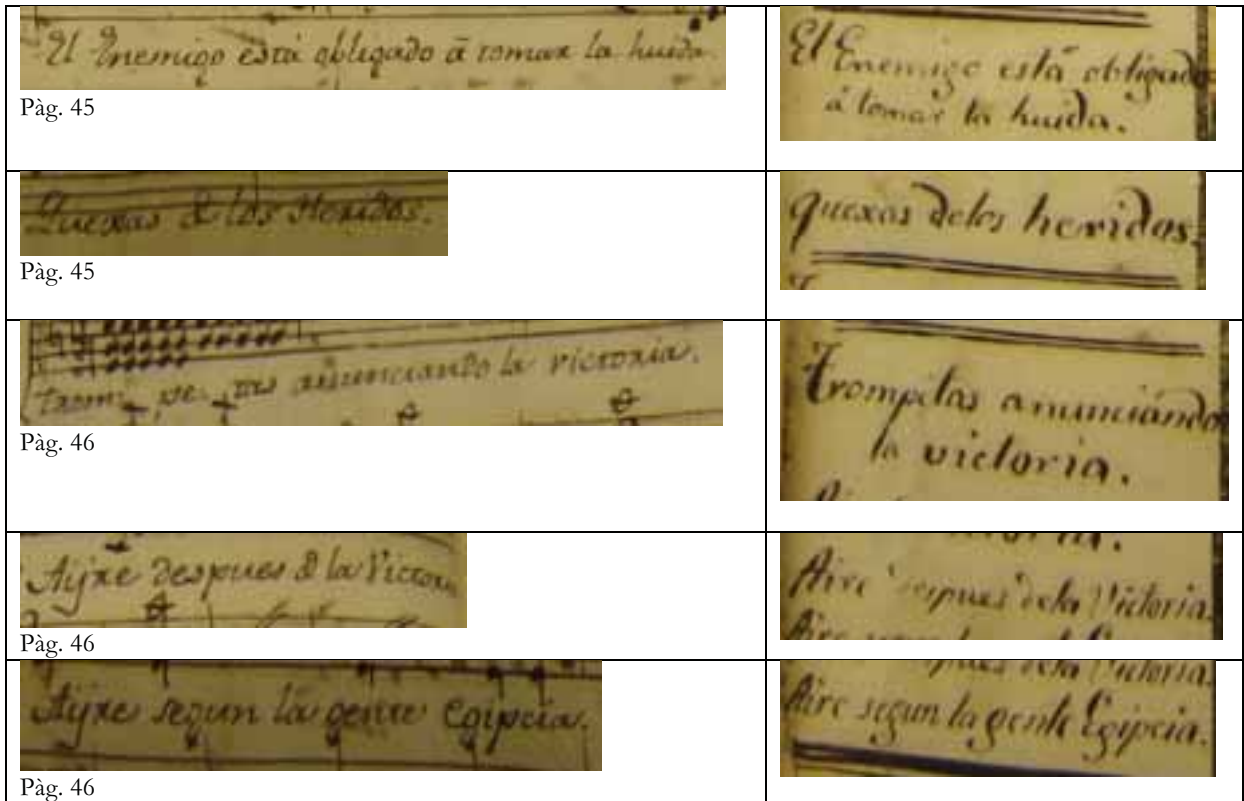 El Enemigo está obligado â tomar la huida.
Pàg. 45
El Enemigo está obligado
á tomar la huida.
Quexas d los Heridos.
Pàg. 45
quexas delos heridos.
Pàg. 46
trom- pe- tas anunciando la victoria.
Trompetas anunciándo
la victoria.
Ayre despues d la Victoria
Pàg. 46
Aire despues dela Victoria.
Ayre segun la gente Egipcia.
Pàg. 46
Aire segun la gente Egipcia.